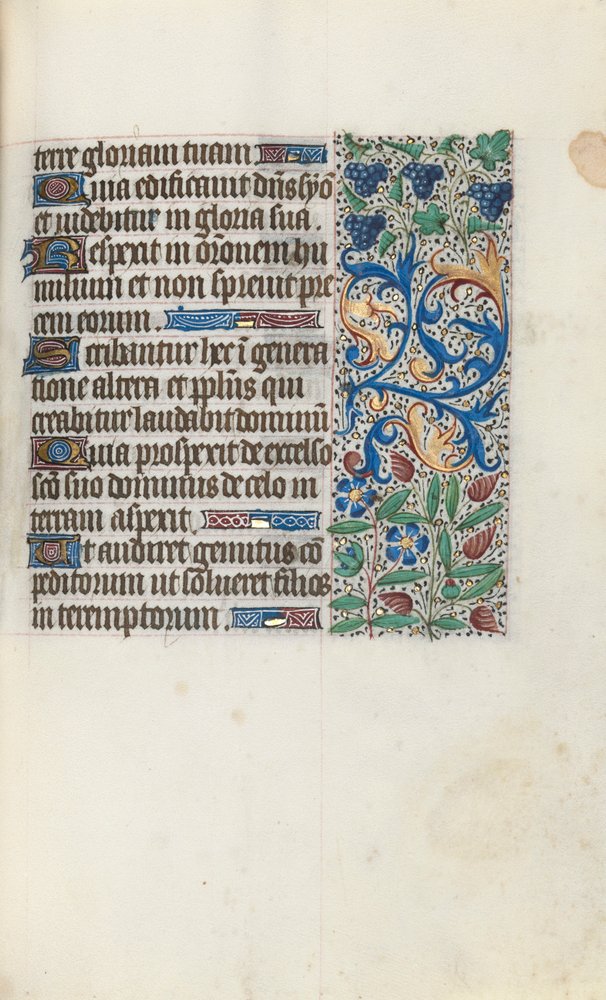 terre gloriam tuam.
Quia edificavit dñs syõ
et videbitur in gloria sua.
Respexit in orõnem hu
milium et non sprevit pre
cem eorum.
Scribantur hec ĩ genera
tione altera et pplũs qui
creabitur laudabit dominum
Quia prospexit de excelso
scõ suo dominus de celo in
terram aspexit.
Ut audiret gemitus cõ
peditorum ut sõlueret filios
interemptorum.